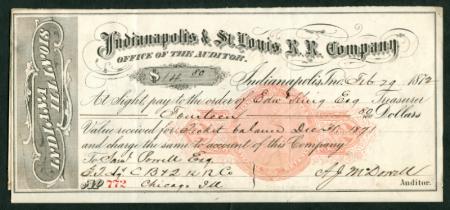 INDIANAPOLIS AND ST. LOUIS
Indianapolis & St. Louis R. R. Company
OFFICE OF THE AUDITOR.
$ 14.00
Indianapolis, Ind. Feb 29 1872
At Sight pay to the order of Edw King Esq Treasurer
Fourteen Dollars
Value received for Ticket balance Dec 31 1871
and charge the same to account of this Company
To Saml Powell Esq
C B & Q R R Co
No 772 Chicago Ill
A. J. McDowell
Auditor.